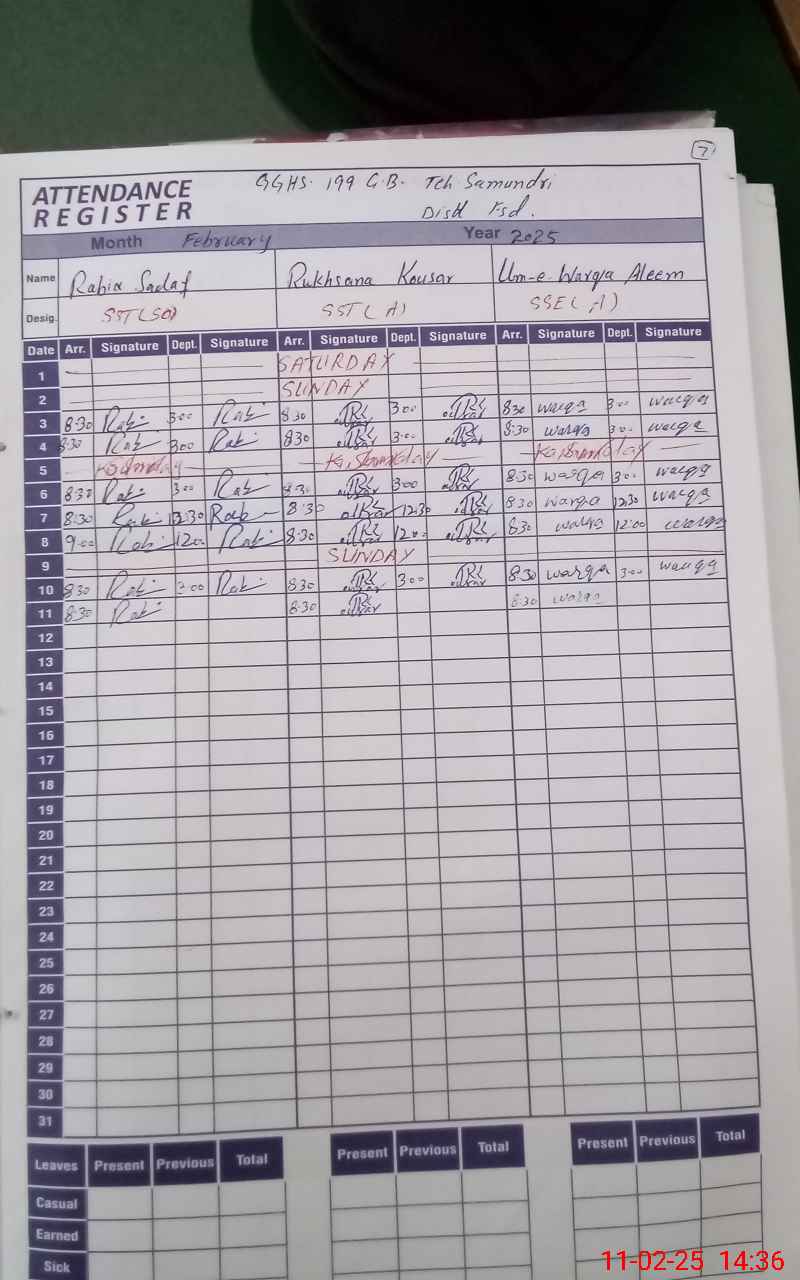 7
GGHS. 199 G.B. Teh Samundri
ATTENDANCE
REGISTER
Distt Fsd.
Month February Year 2025
Name Rabia Sadaf Rukhsana Kousar Um-e-Warqa Aleem
Desig. SST(SC) SST(A) SSE(A)
Date Arr. Signature Dept. Signature Arr. Signature Dept. Signature Arr. Signature Dept. Signature
1 SATURDAY
2 SUNDAY
3 8:30 Rabi 300 Rabi 8:30 300 830 warqa 3:00 warqa
4 8:30 Rabi 300 Rabi 830 3:00 8:30 warqa 3:00 warqa
5 Kashmday K,shamday Kashmday
6 8:30 Rabi 300 Rabi 8:30 300 8:30 warqa 3:00 warqa
7 8:30 Rabi 12:30 Rabi 8:30 12:30 8:30 warqa 12:30 warqa
8 9:00 Rabi 1200 Rabi 8:30 1200 8:30 warqa 12:00 warqa
9 SUNDAY
10 8:30 Rabi 3:00 Rabi 8:30 300 8:30 warqa 3:00 warqa
11 8:30 Rabi 8:30 8:30 warqa
12
13
14
15
16
17
18
19
20
21
22
23
24
25
26
27
28
29
30
31
Leaves Present Previous Total Present Previous Total Present Previous Total
Casual
Earned
Sick
11-02-25 14:36